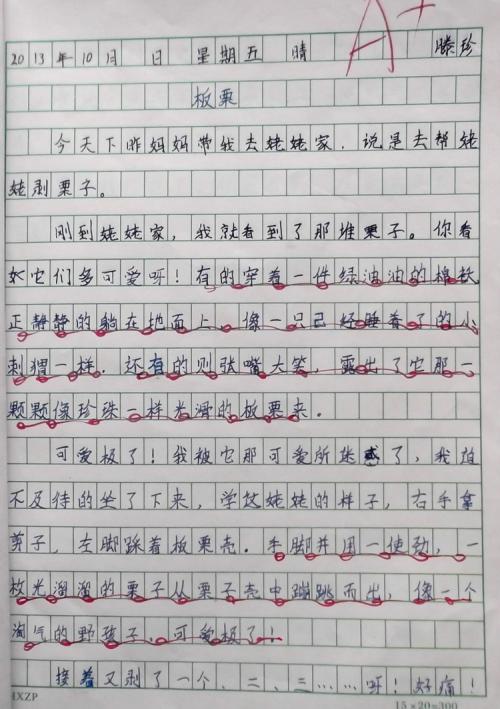 A+
2013年10月 日 星期五 晴 滕珍
板栗
今天下昨妈妈带我去姥姥家,说是去帮姥
姥剥栗子。
刚到姥姥家,我就看到了那堆栗子。你看
它们多可爱呀!有的穿着一件绿油油的棉袄
正静静的躺在地面上,像一只已经睡着了的小
刺猬一样.还有的则张嘴大笑,露出了它那一
颗颗像珍珠一样光滑的板栗来.
可爱极了!我被它那可爱所迷惑了,我迫
不及待的坐了下来,学这姥姥的样子,右手拿
剪子,左脚踩着板栗壳.手脚并用一使劲,一
枚光溜溜的栗子从栗子壳中蹦跳而出,像一个
淘气的野孩子,可爱极了!
接着又剥了一个、二、三……呀!好痛!
IXZP 15×20=300